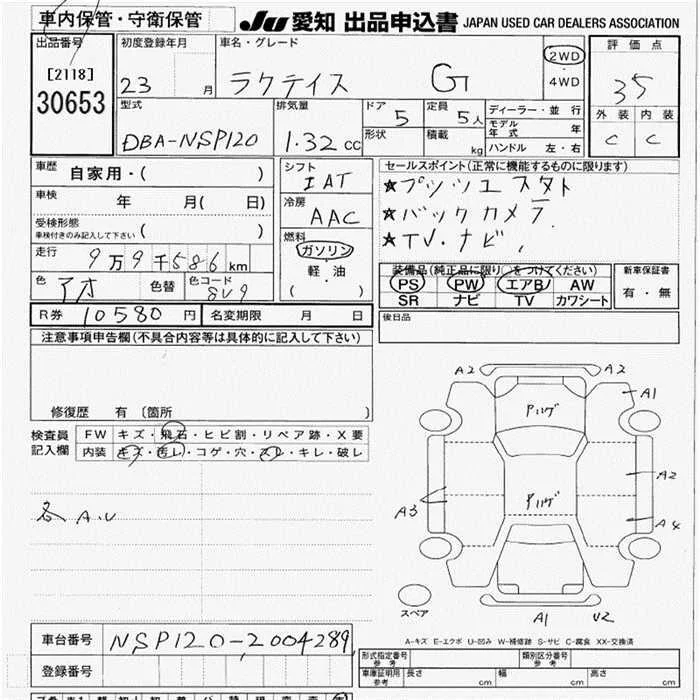 車内保管・守衛保管
JU 愛知 出品申込書 JAPAN USED CAR DEALERS ASSOCIATION
出品番号
[2118]
30653
初度登録年月
23 月
車名・グレード
ラクティス G
2WD
・
4WD
評価点
35
外装 内装
C C
型式
DBA-NSP120
排気量
1.32 cc
ドア
5
定員
5人
形状
積載
kg
ディーラー・並行
モデル年式 年
ハンドル 左・右
車歴 自家用・( )
車検 年 月( 日)
受検形態
車検付きのみ記入して下さい ( )
走行 9万9千586km
色 アオ 色替 色コード
8V9
シフト
IAT
冷房
AAC
燃料
ガソリン
・
軽・油
( )
セールスポイント(正常に機能するものに限ります)
★プッシュスタート
★バックカメラ
★TV.ナビ.
装備品(純正品に限り○をつけてください)
PS PW エアB AW
SR ナビ TV カワシート
新車保証書
有・無
R券 10580 円 名変期限 月 日
後日品
注意事項申告欄(不具合内容等は具体的に記入して下さい)
修復歴 有〔箇所 〕
検査員
記入欄
FW キズ・飛石・ヒビ割・リペア跡・X要
内装 キズ・汚レ・コゲ・穴・スレ・キレ・破レ
各 A.U
A2 A2
A1
Pハゲ
A2
Pハゲ
A3
A4
スペア
A1 U2
A-キズ E-エクボ U-凹み W-補修跡 S-サビ C-腐食 XX-交換済
車台番号 NSP120-2004289
登録番号
形式指定番号
参考
類別区分番号
参考
車庫証明用
参考
長さ cm 幅 cm 高さ cm